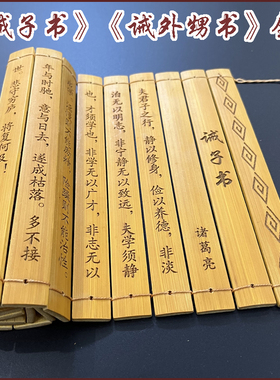 诫子书》《诫外甥书》
诫子书
诸葛亮
夫君子之行，静以修身，俭以养德，非淡
泊无以明志，非宁静无以致远。夫学须静
也，才须学也，非学无以广才，非志无以
险躁则不能治性；
年与时驰，意与日去，遂成枯落。多不接
世，悲守穷庐，将复何及！